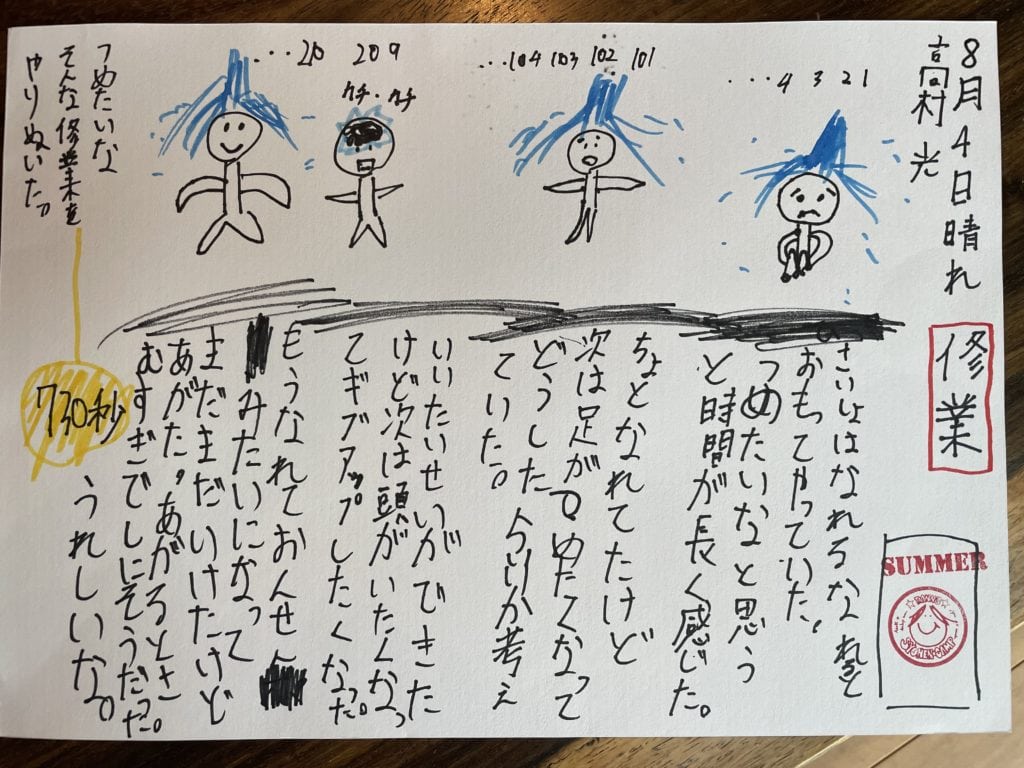 8月4日晴れ
高村光
修業
SUMMER
・・・4 3 2 1
・・・104 103 102 101
209
カチ・カチ
・・・210
さいしょはなれるなれると
おもてやっていた。
つめたいなと思う
と時間が長く感じた。
ちょとなれてたけど
次は足がつめたくなって
どうしたらいいか考え
ていた。
いいたいせいができた
けど次は頭がいたくなっ
てギブアップしたくなった。
もうなれておんせん
みたいになって
まだまだいけたけど
あがた。あがるとさ
むすぎでしにそうだった。
うれしいな。
つめたいな
そんな修業を
やりぬいた。
730秒